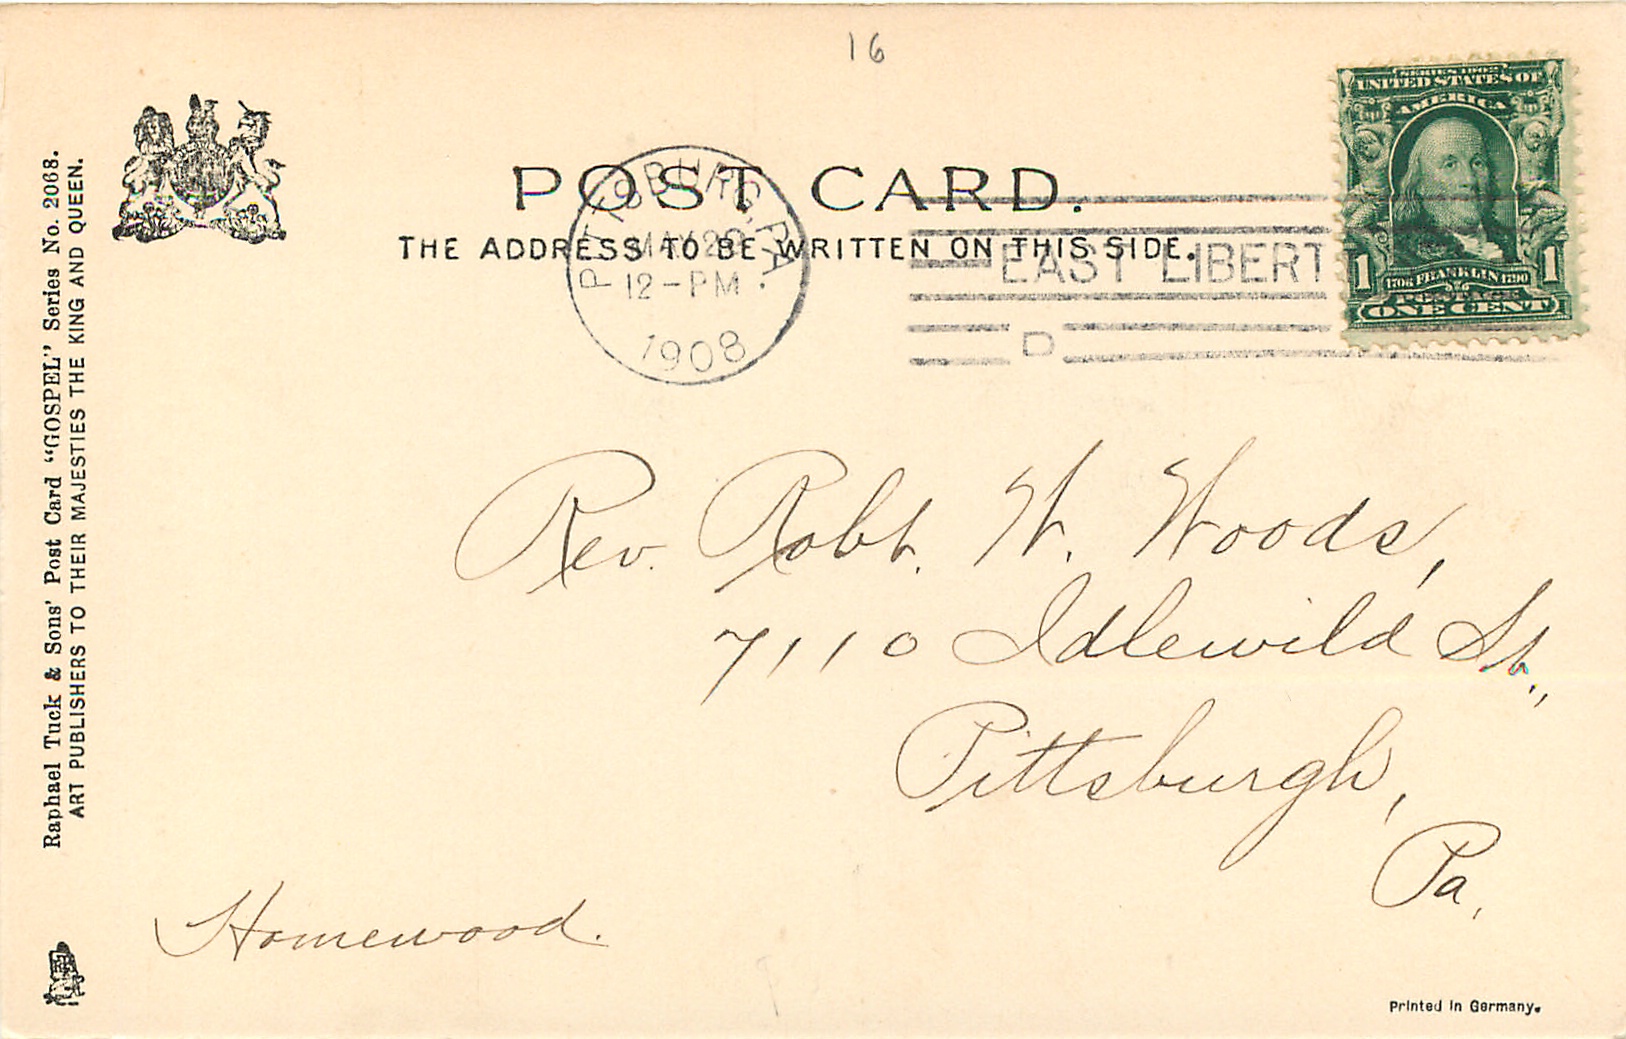 16
POST CARD.
THE ADDRESS TO BE WRITTEN ON THIS SIDE.
PITTSBURG, PA.
MAY
12-PM
1908
EAST LIBERT
D
SERIES 1902
UNITED STATES OF
AMERICA
1706 FRANKLIN 1790
1 1
POSTAGE
ONE CENT
Raphael Tuck & Sons' Post Card "GOSPEL" Series No. 2068.
ART PUBLISHERS TO THEIR MAJESTIES THE KING AND QUEEN.
Rev. Robt. W. Woods,
7110 Idlewild St.,
Pittsburgh,
Pa.
Homewood.
Printed in Germany.